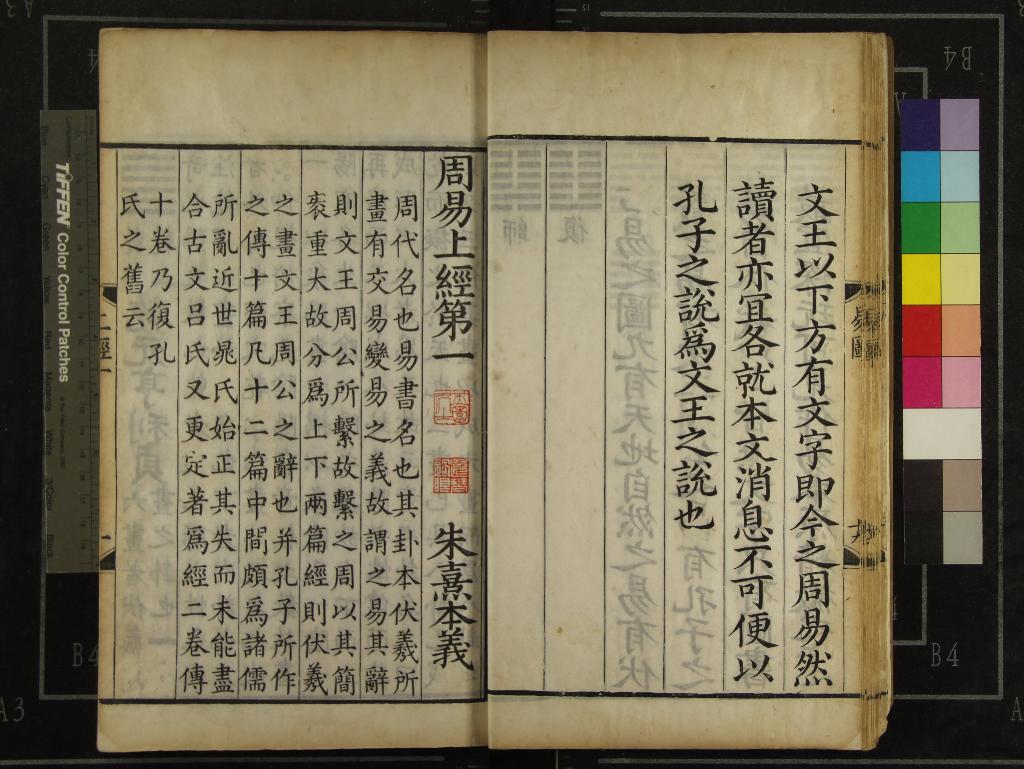 文王以下方有文字即今之周易然
讀者亦宜各就本文消息不可便以
孔子之說爲文王之說也
周易上經第一
朱熹本義
周代名也易書名也其卦本伏羲所
畫有交易變易之義故謂之易其辭
則文王周公所繫故繫之周以其簡
袠重大故分爲上下兩篇經則伏羲
之畫文王周公之辭也并孔子所作
之傳十篇凡十二篇中間頗爲諸儒
所亂近世晁氏始正其失而未能盡
合古文吕氏又更定著爲經二卷傳
十卷乃復孔
氏之舊云
易圖
TIFFEN Color Control Patches
B4
B4
A3